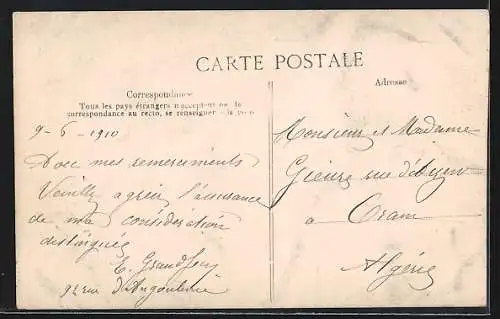 CARTE POSTALE
Correspondance
Tous les pays étrangers n'acceptent pas la
correspondance au recto, se renseigner à la
Adresse
9-6-1910
Avec mes remerciements
Veuillez agréer l'assurance
de ma considération
distinguée
E.
92 rue d'Angoulême
Monsieur et Madame
rue
à Oran
Algérie